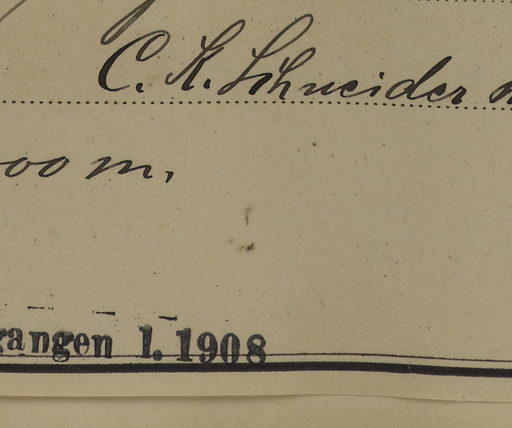 C. K. Schneider
oo m.
gangen 1. 1908